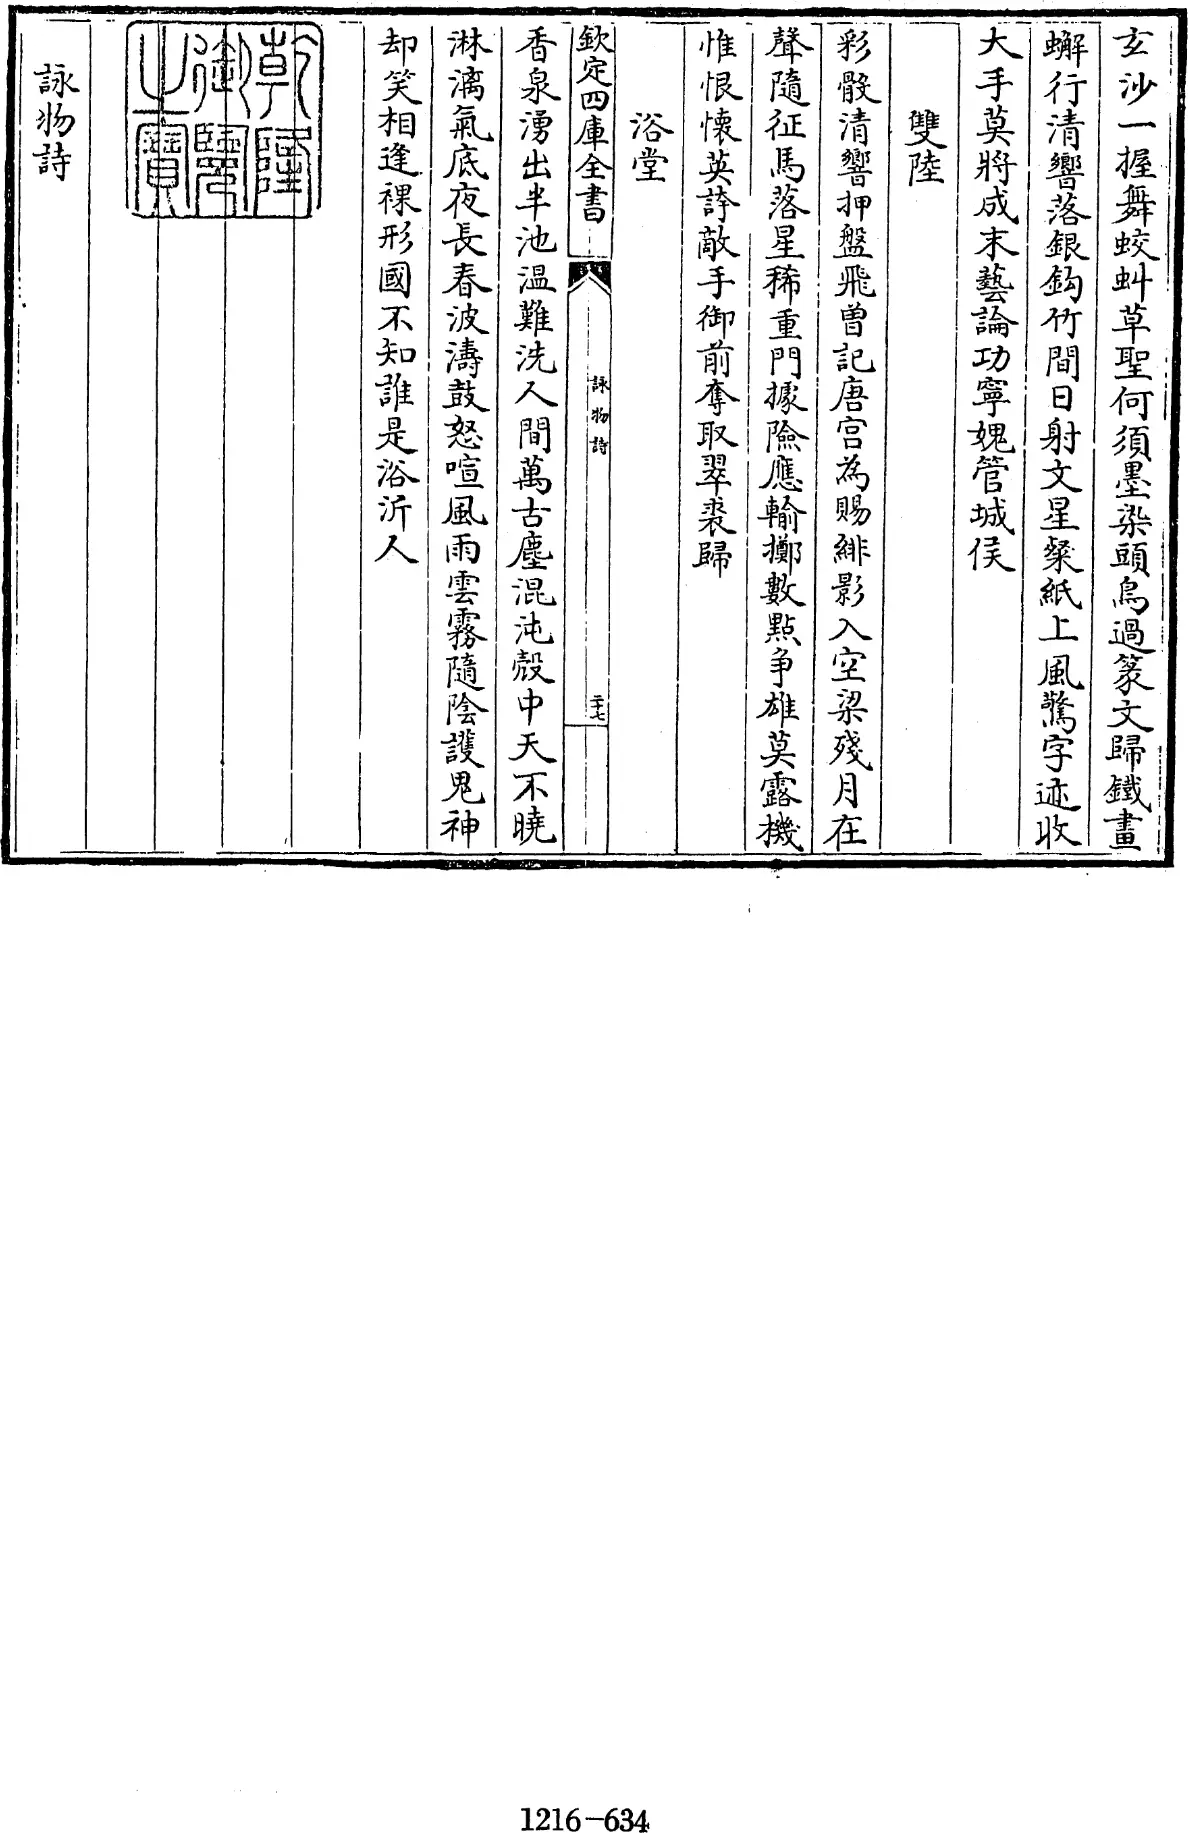 玄沙一握舞蛟虯草聖何須墨染頭鳥過篆文歸鐵畫
蠏行清響落銀鈎竹間日射文星粲紙上風驚字迹收
大手莫將成末藝論功寧媿管城侯
雙陸
彩骰清響押盤飛曾記唐宫為賜緋影入空梁殘月在
聲隨征馬落星稀重門據險應輸擲數點争雄莫露機
惟恨懐英誇敵手御前奪取翠裘歸
浴堂
欽定四庫全書
詠物詩
二十七
香泉湧出半池温難洗人間萬古塵混沌殻中天不曉
淋漓氣底夜長春波濤鼓怒喧風雨雲霧隨陰護鬼神
却笑相逢裸形國不知誰是浴沂人
乾隆
御覽
之寶
詠物詩
1216-634